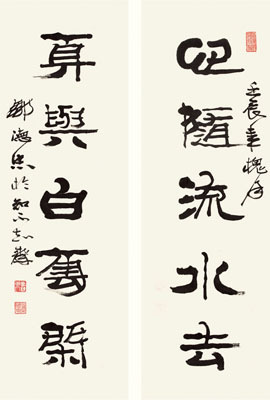 心隨流水去
壬辰年槐月
身與白雲閑
海忠於知不知齋